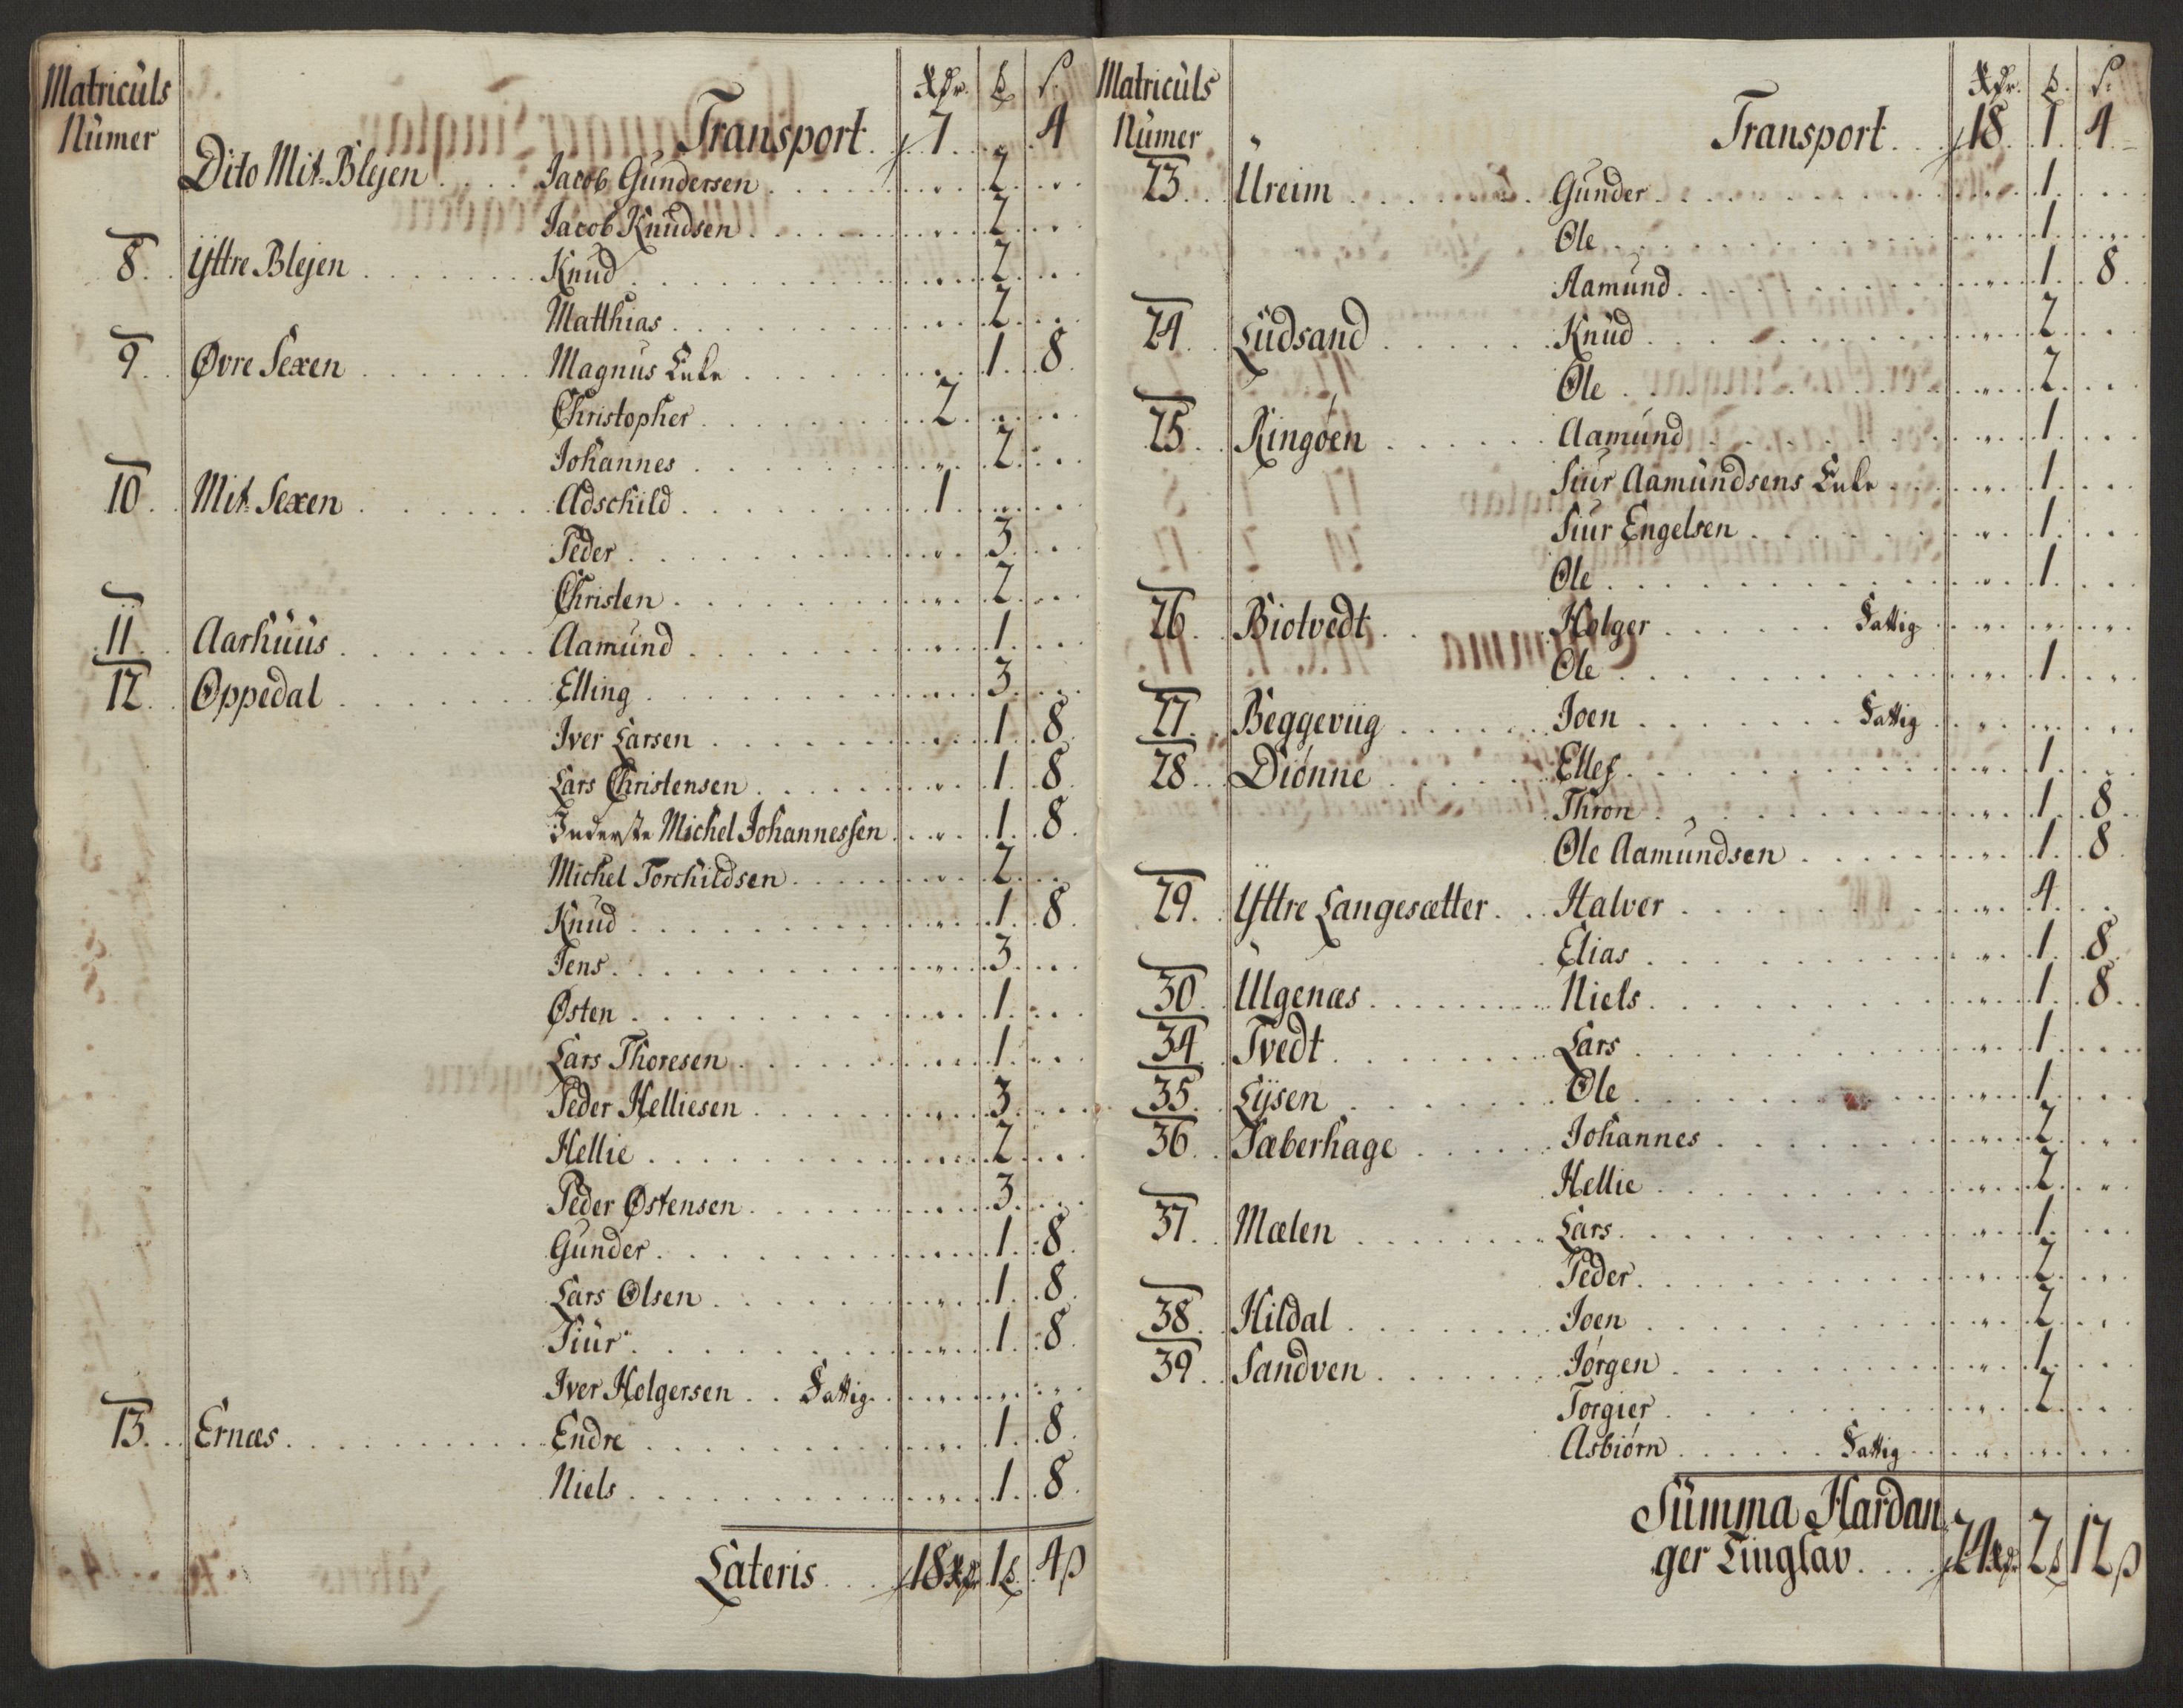 Matriculs Rdr. ß. S.
Numer Transport 7 " 4
Dito Mit-Blejen Jacob Gundersen " 2
Jacob Knudsen " 2
8. Yttre Blejen Knud " 2
Matthias " 2
9. Øvre Sexen Magnus Enke " 1 8
Christopher 2
Johannes " 2
10. Mit-Sexen Adschild 1
Peder " 3
Christen " 2
11. Aarhuus Aamund " 1
12. Oppedal Elling " 3
Iver Larsen " 1 8
Lars Christensen " 1 8
Inderste Michel Johannessen " 1 8
Michel Torchildsen " 2
Knud " 1 8
Jens " 3
Østen " 1
Lars Thoresen " 1
Peder Helliesen " 3
Hellie " 2
Peder Østensen " 3
Gunder " 1 8
Lars Olsen " 1 8
Siur " 1 8
Iver Holgersen Fattig " " "
13. Ernæs Endre " 1 8
Niels " 1 8
Lateris 18 Rdr 1 ß 4 s
Matriculs Rdr. ß. S.
Numer Transport 18 1 4
23. Ureim Gunder " 1
Ole " 1
Aamund " 1 8
24. Ludsand Knud " 2
Ole " 2
25. Ringøen Aamund " 1
Siur Aamundsens Enke " 1
Siur Engelsen " 1
Ole " 1
26. Biotvedt Holger Fattig " " "
Ole " 1
27. Beggeviig Joen Fattig " " "
28. Diønne Ellef " 1
Thron " 1 8
Ole Aamundsen " 1 8
29. Yttre Langesætter Halver " 4
Elias " 1 8
30. Ulgenæs Niels " 1 8
34. Tvedt Lars " 1
35. Lÿsen Ole " 1
36. Jæberhage Johannes " 2
Hellie " 2
37. Mælen Lars " 1
Peder " 2
38. Hildal Joen " 2
39. Sandven Jørgen " 1
Torgier " 2
Asbiørn Fattig " " "
Summa Hardan
ger Tinglav 24 Rdr 2 ß 12 s